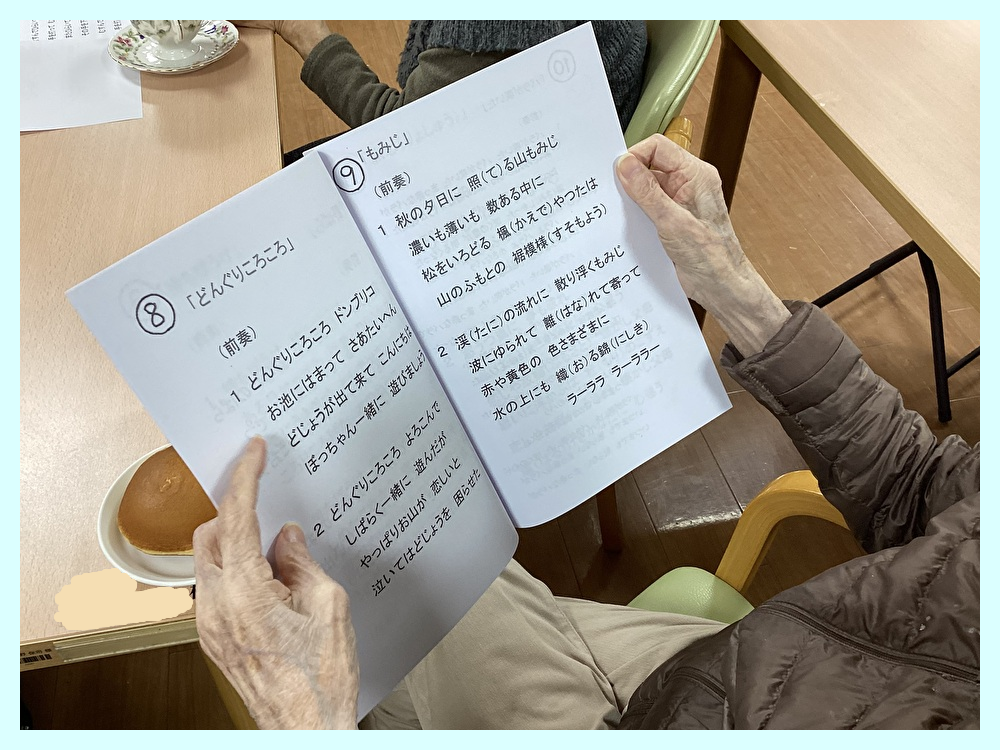 ⑧「どんぐりころころ」
(前奏)
1 どんぐりころころ ドンブリコ
お池にはまって さあたいへん
どじょうが出て来て こんにちは
ぼっちゃん一緒に 遊びましょう
2 どんぐりころころ よろこんで
しばらく一緒に 遊んだが
やっぱりお山が 恋しいと
泣いてはどじょうを 困らせた
⑨「もみじ」
(前奏)
1 秋の夕日に 照(て)る山もみじ
濃いも薄いも 数ある中に
松をいろどる 楓(かえで)やつたは
山のふもとの 裾模様(すそもよう)
2 渓(たに)の流れに 散り浮くもみじ
波にゆられて 離(はな)れて寄って
赤や黄色の 色さまざまに
水の上にも 織(お)る錦(にしき)
ラーララ ラーララー
⑩